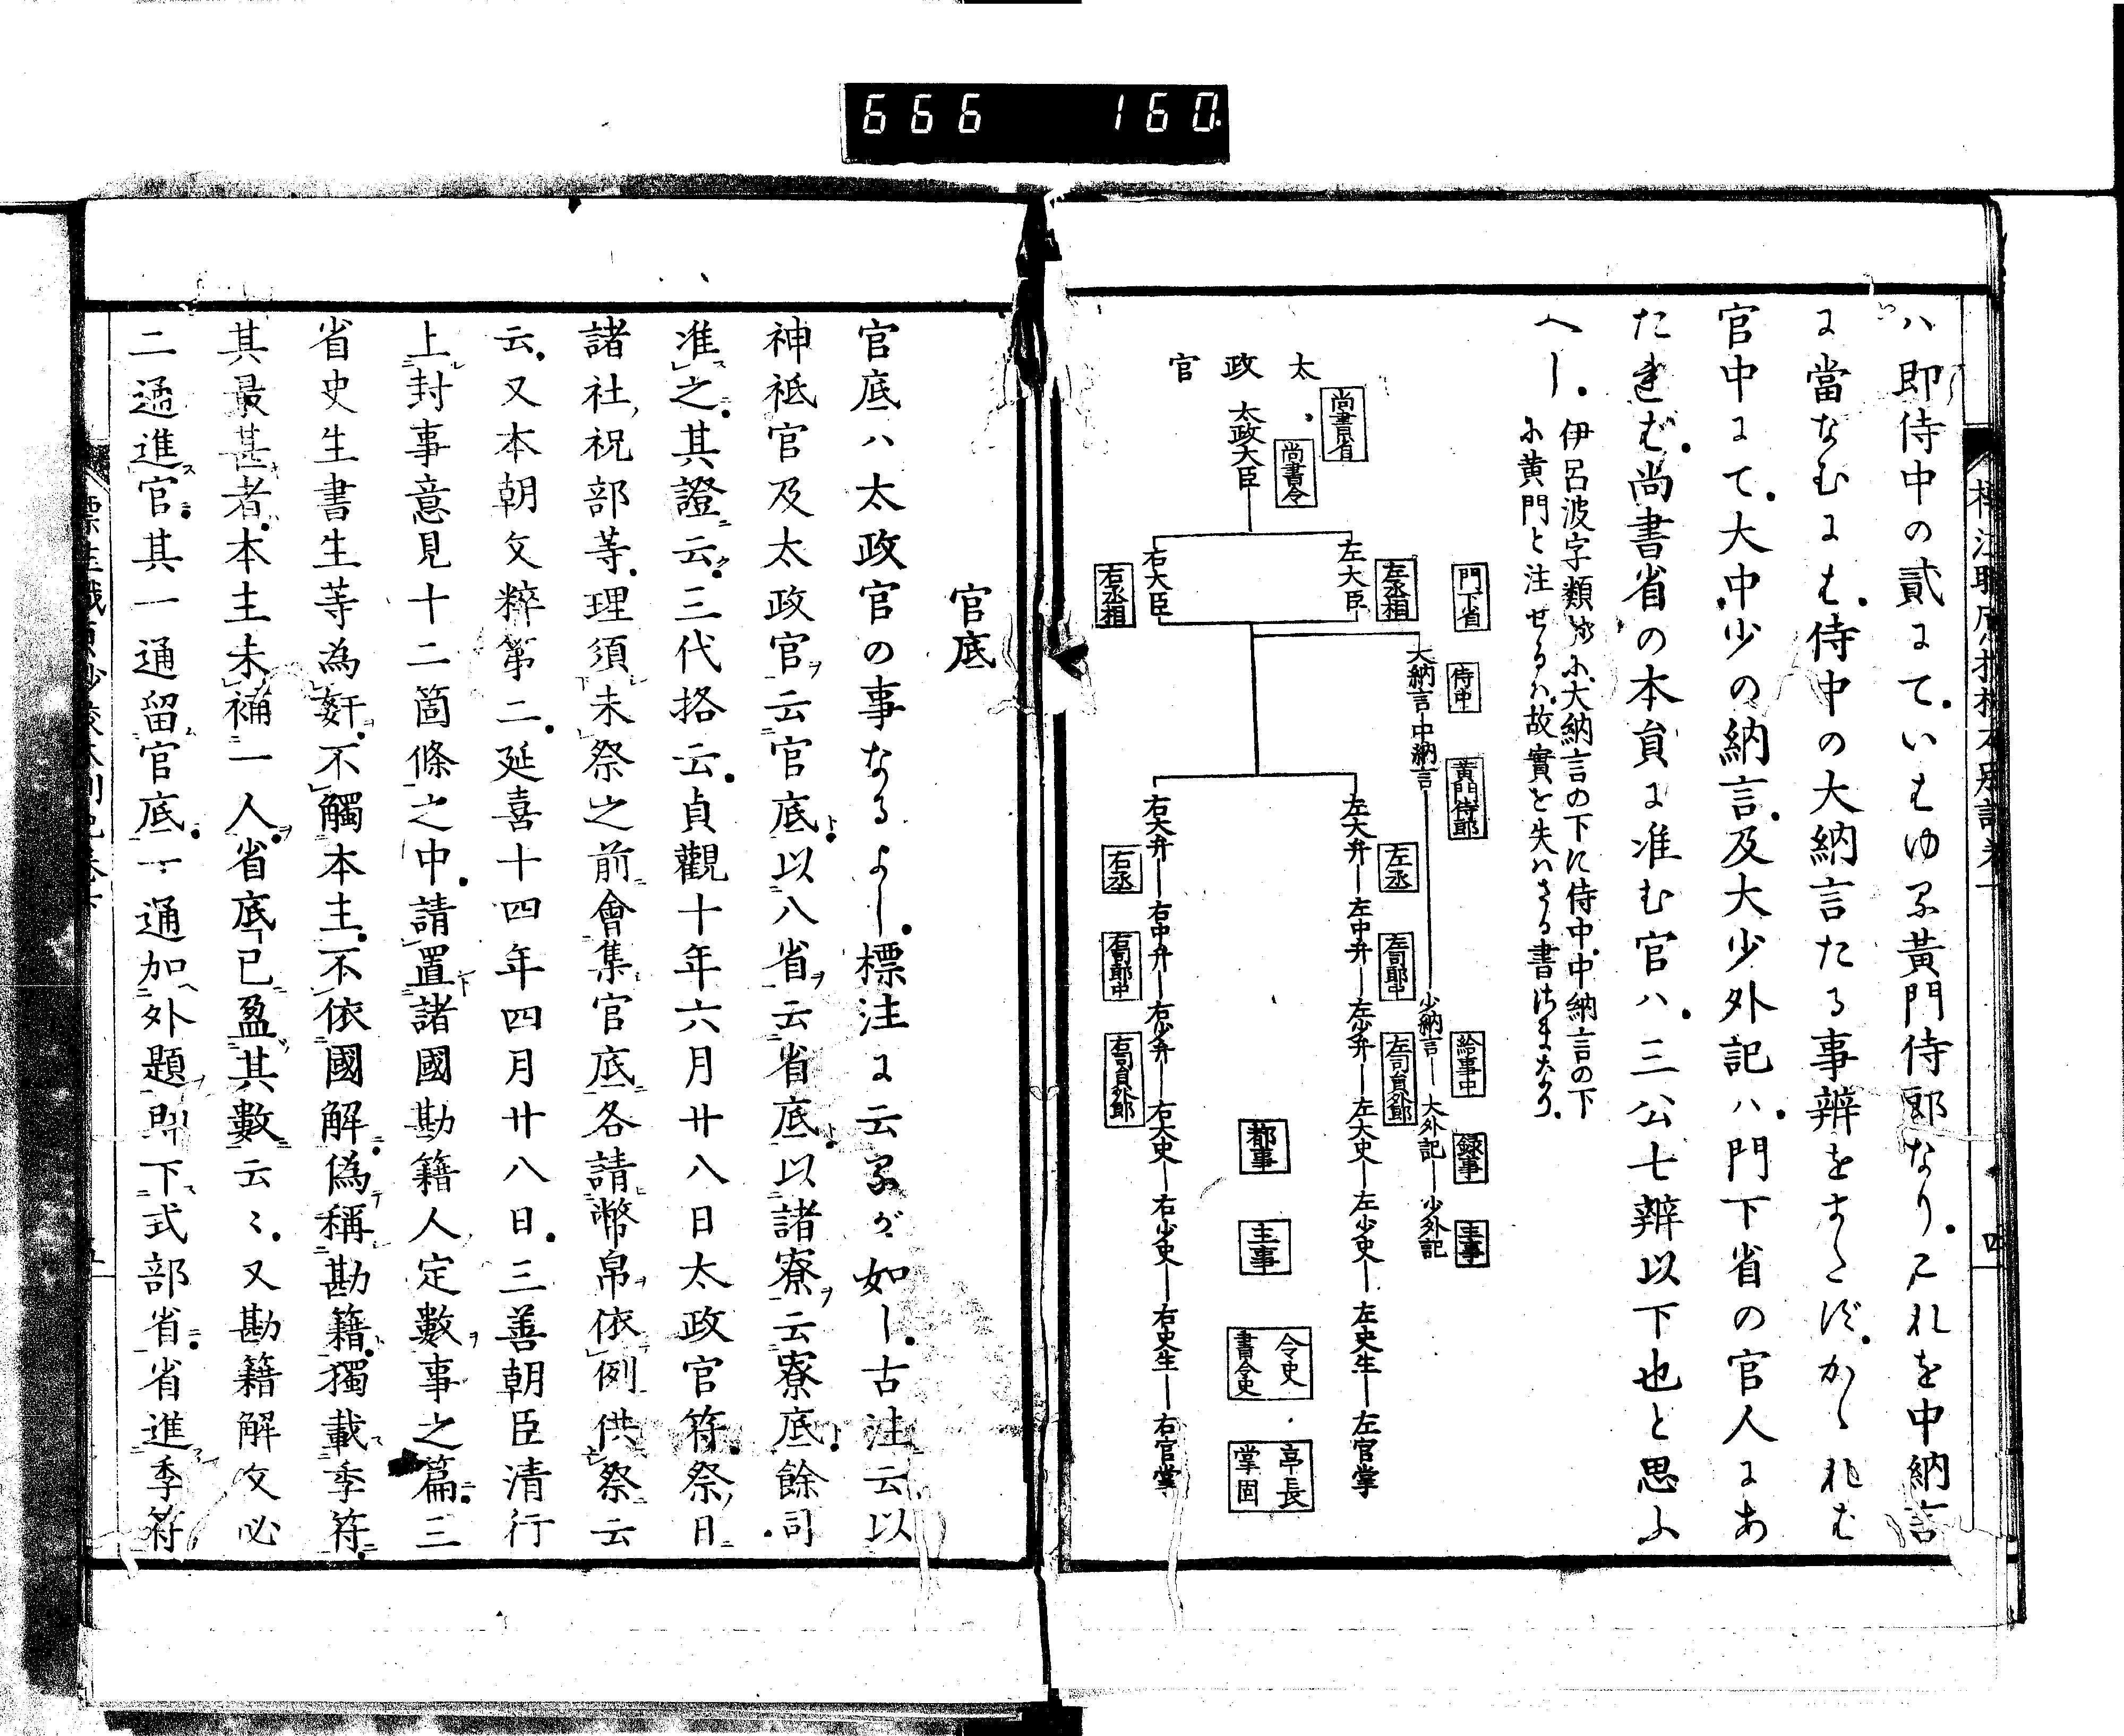 666 160
ハ即侍中の貳にて。いはゆる黄門侍郎なり。これを中納言
に當なむには。侍中の大納言たる事辨をまたず。かゝれば
官中にて。大中少の納言。及大少外記ハ。門下省の官人にあ
たれば。尚書省の本員に准む官ハ。三公七辨以下也と思ふ
へし。
伊呂波字類抄に、大納言の下に侍中。中納言の下
に黄門と注せるハ。故實を失ハざる書ざまなり。
太政官
尚書省
尚書令
太政大臣
左丞相
左大臣
右大臣
右丞相
門下省
侍中
黄門侍郎
給事中
録事
主事
大納言―中納言―少納言―大外記―少外記
左丞
左司郎中
左司員外郎
左大弁―左中弁―左少弁―左大史―左少史―左史生―左官掌
都事
主事
令史
書令史
亭長
掌固
右大弁―右中弁―右少弁―右大史―右少史―右史生―右官掌
右丞
右司郎中
右司員外郎
四
官底
官底ハ太政官の事なるよし。標注に云るが如し。古注云以
神祇官及太政官ヲ云官底ト。以八省ヲ云省底ト。以諸寮ヲ云寮底ト。餘司
准ス之。其證云ク。三代格云。貞觀十年六月廿八日太政官符。祭日
諸社祝部等。理須未祭之前會集官底各請幣帛ヲ依例供祭云
云。又本朝文粹第二。延喜十四年四月廿八日。三善朝臣清行
上封事意見十二箇條之中。請置諸國勘籍人定數ヲ事之篇。三
省史生書生等為姧。不觸本主。不依國解。偽稱勘籍。獨載季符。
其最甚者。本主未補一人ヲ。省底已盈其數云〻。又勘籍解文必
二通進官。其一通留官底。一通加外題即下式部省。省進季符